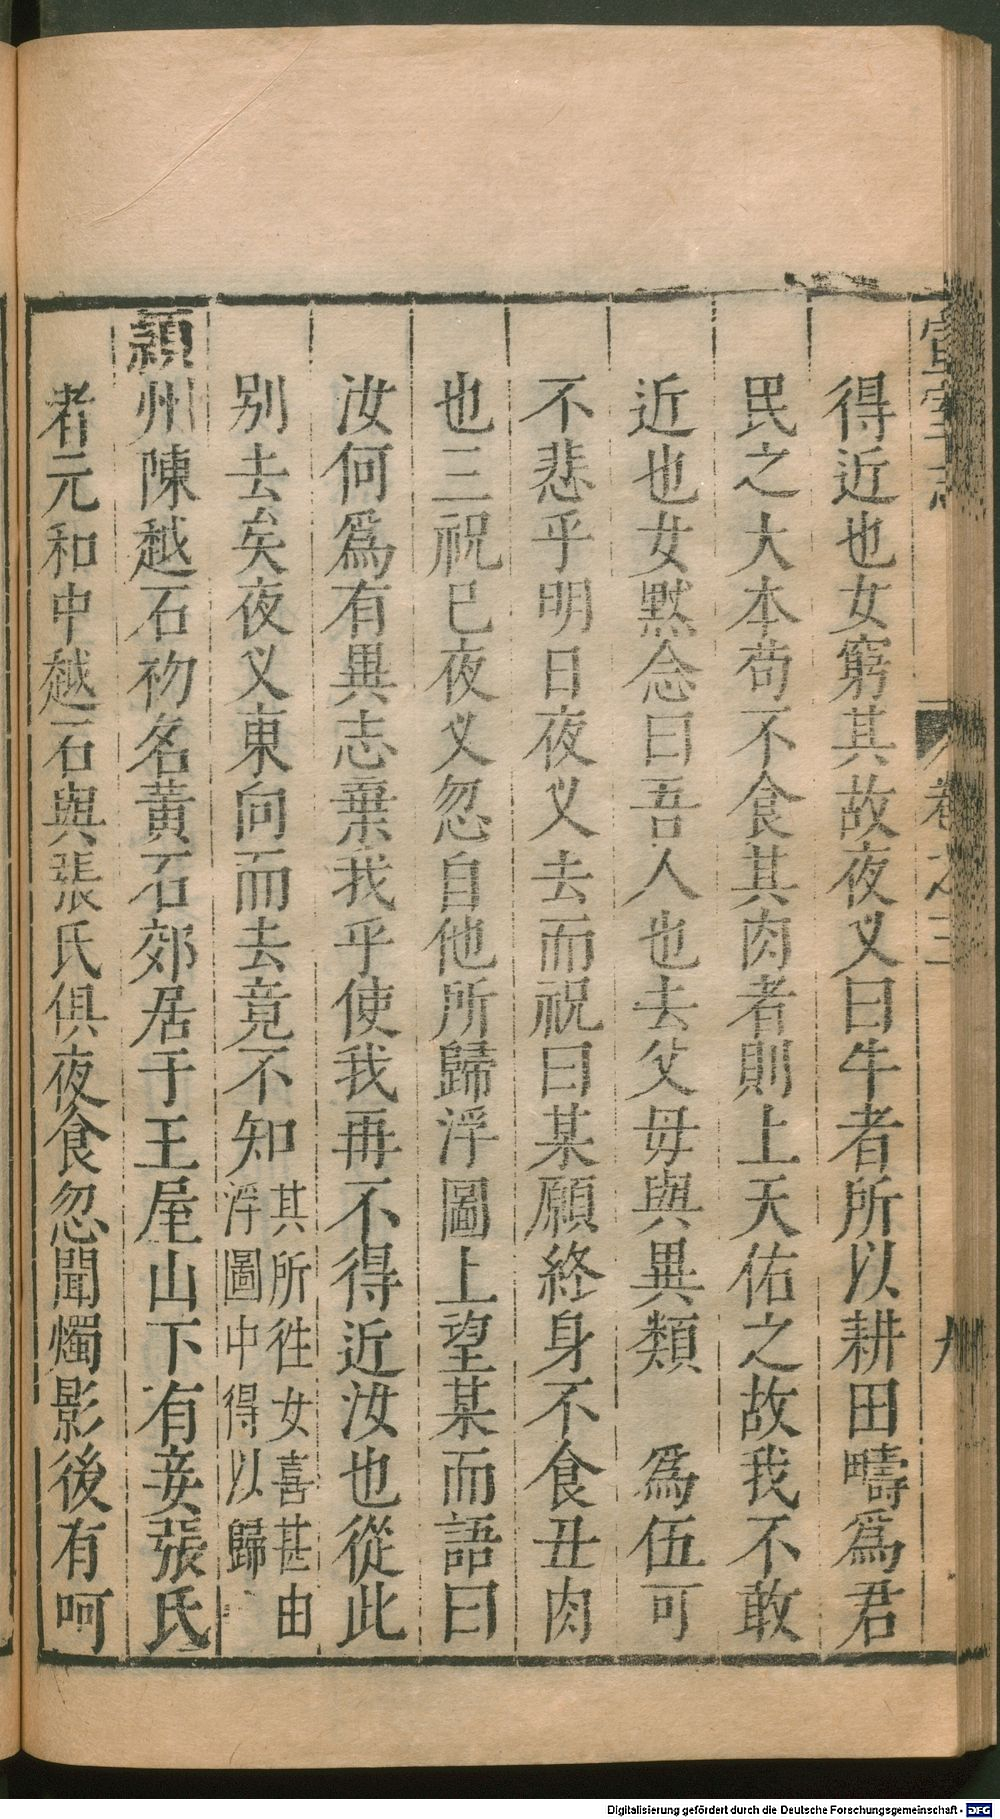 宣室志 卷之三 九
得近也女窮其故夜叉曰牛者所以耕田疇爲君
民之大本苟不食其肉者則上天佑之故我不敢
近也女黙念曰吾人也去父母與異類 爲伍可
不悲乎明日夜叉去而祝曰某願終身不食丑肉
也三祝已夜叉忽自他所歸浮圖上望某而語曰
汝何爲有異志棄我乎使我再不得近汝也從此
别去矣夜叉東向而去竟不知其所徃女喜甚由浮圖中得以歸
頴州陳越石初名黄石郊居于王屋山下有妾張氏
者元和中越石與張氏俱夜食忽聞燭影後有呵
Digitalisierung gefördert durch die Deutsche Forschungsgemeinschaft - DFG